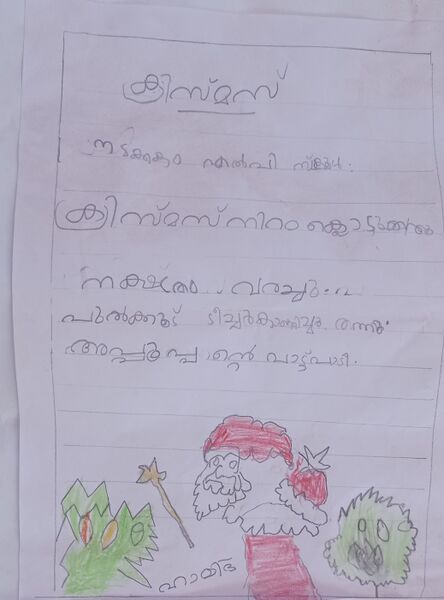 ക്രിസ്മസ്
നടക്കാം എൽപി സ്കൂൾ.
ക്രിസ്മസ് നിറം കൊടുത്തു
നക്ഷത്രം വരച്ചു
പുൽക്കൂട് ടീച്ചർ കാണിച്ചു തന്നു.
അപ്പൂപ്പന്റെ പാട്ട് പാടി.
ഹായിദ